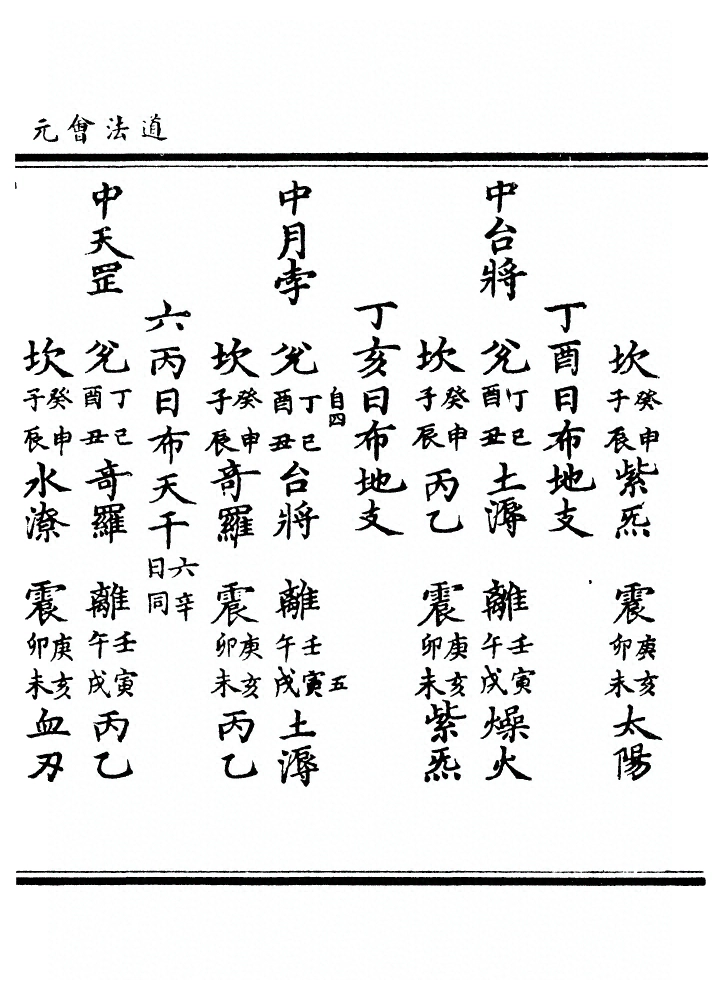 道法會元
坎癸申子辰紫炁 震庚亥卯未太陽
丁酉日布地支
中台將 兌丁巳酉丑土溽 離壬寅午戌燥火
坎癸申子辰丙乙 震庚亥卯未紫炁
丁亥日布地支
自四 五
中月孛 兌丁巳酉丑台將 離壬寅午戌土溽
坎癸申子辰奇羅 震庚亥卯未丙乙
六丙日布天干六辛日同
中天罡 兌丁巳酉丑奇羅 離壬寅午戌丙乙
坎癸申子辰水潦 震庚亥卯未血刃